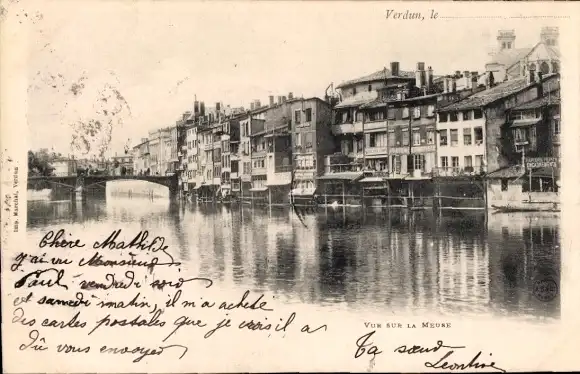 Verdun, le
Imp. Marchal, Verdun
Chère Mathilde
j'ai vu Monsieur
Paul vendredi soir
et samedi matin, il m'a acheté
des cartes postales que je crois il a
Dû vous envoyer
VUE SUR LA MEUSE
Ta sœur
Léontine